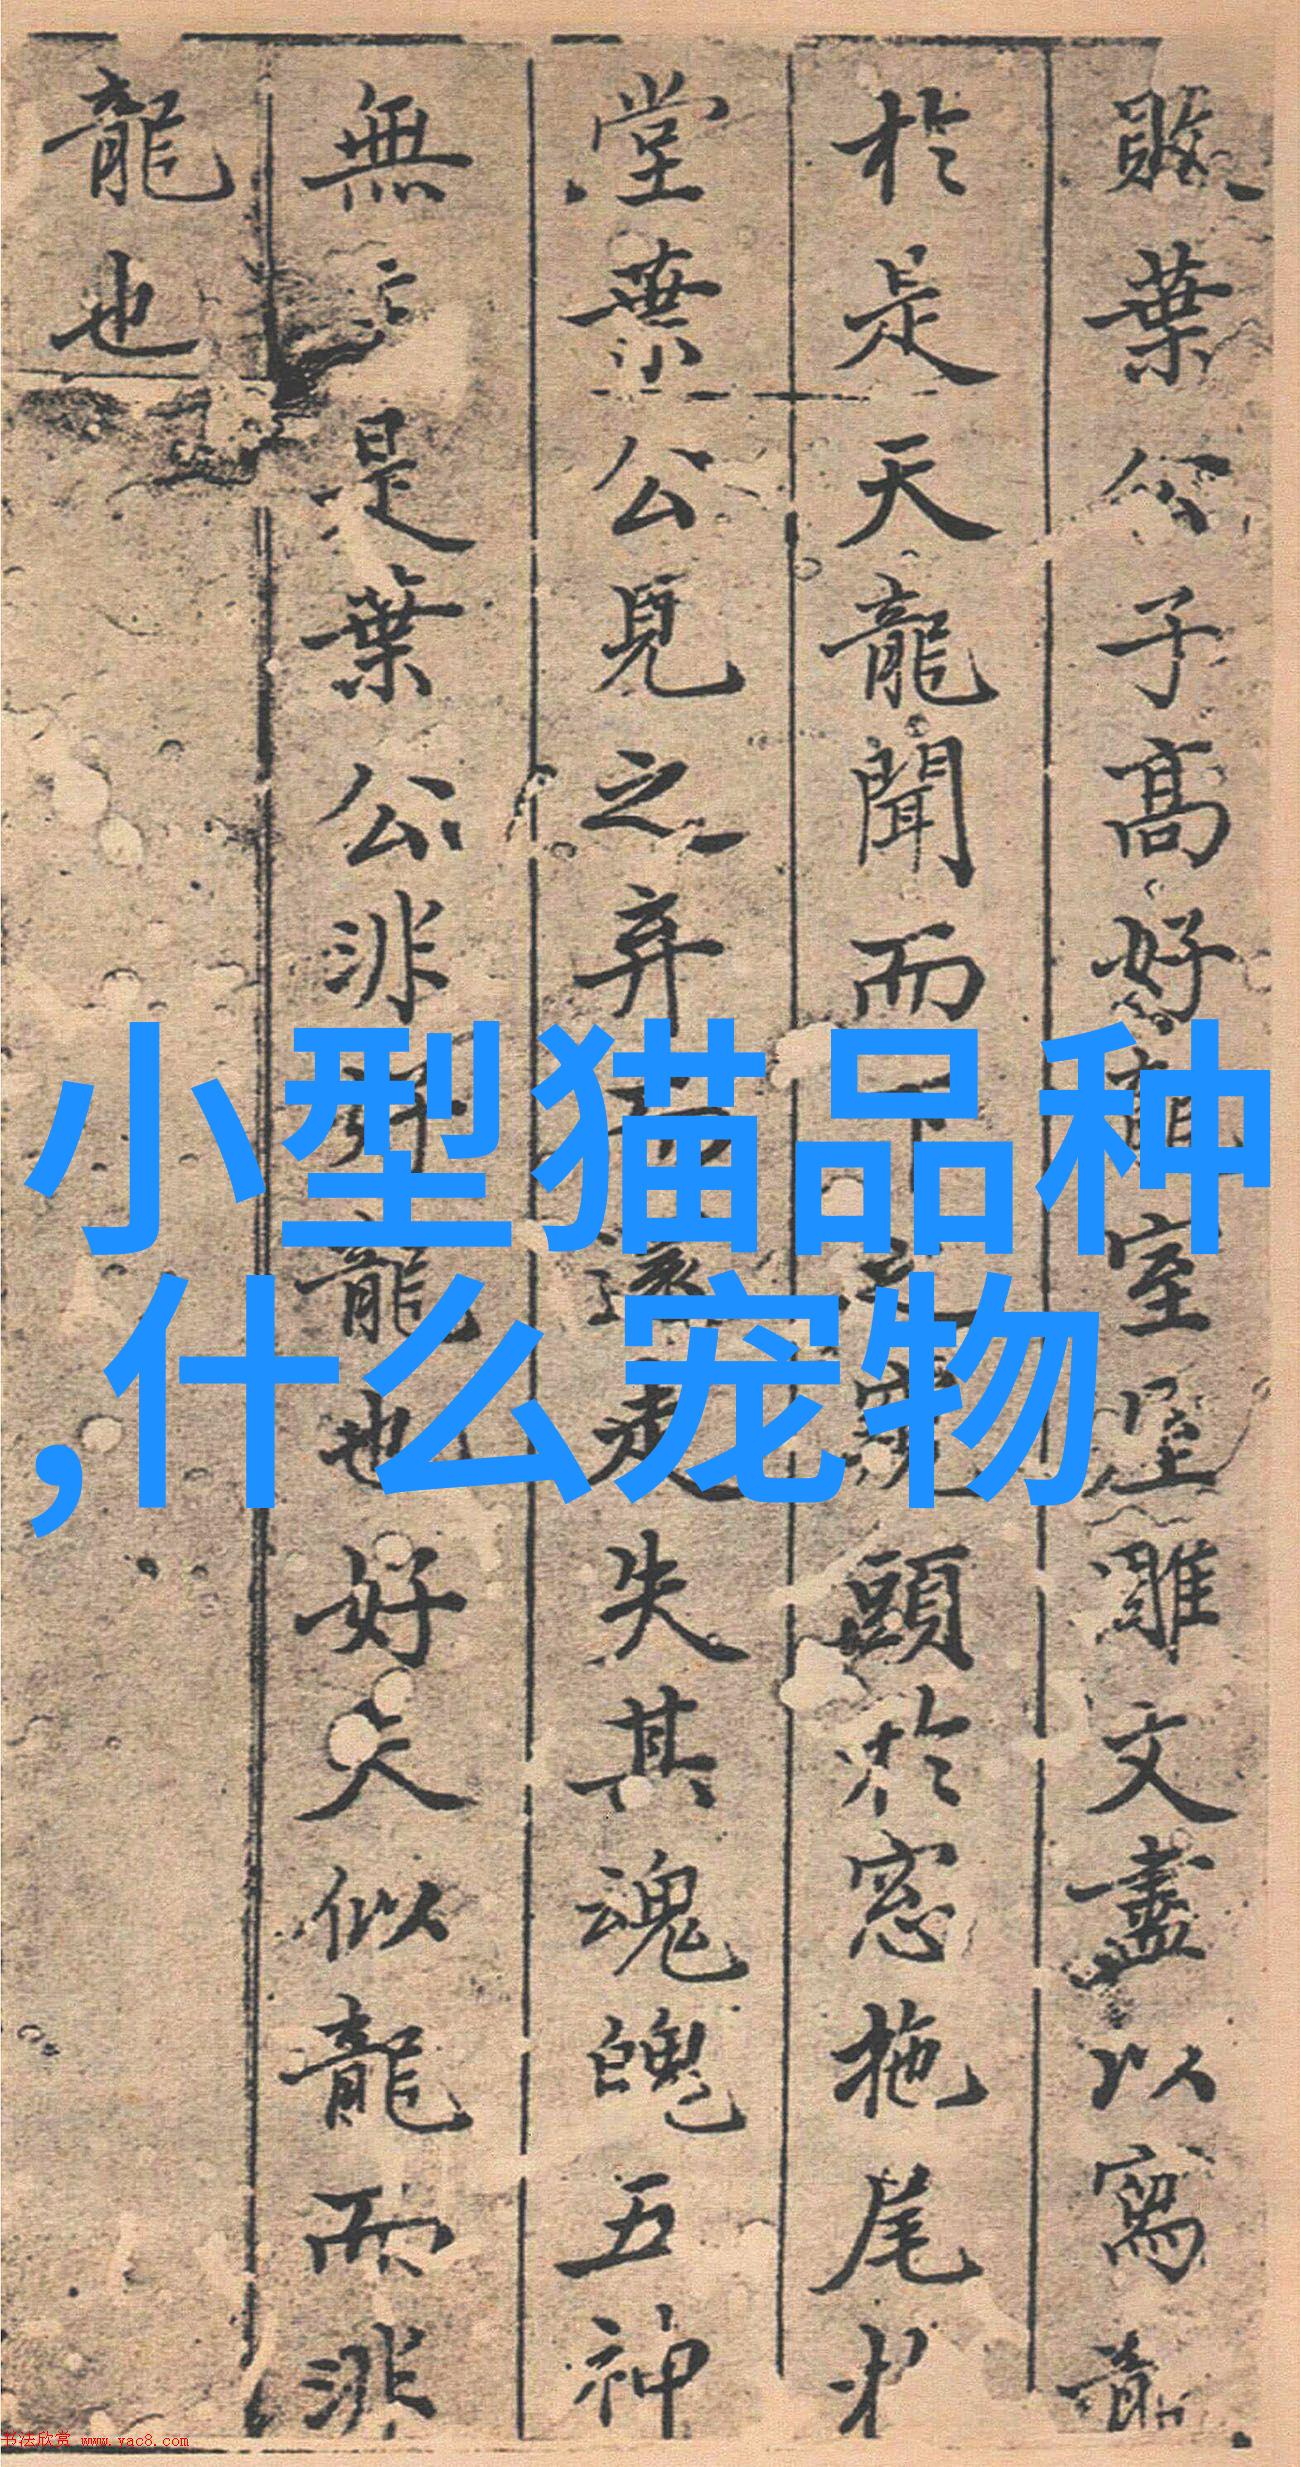 敗葉公子高好龍室屋雕文盡以寫龍
於是天龍聞而下之窺頭於窓拖尾於
堂葉公見之弃而還走失其魂魄五神
無主是葉公非好龍也好夫似龍而非
龍也
小型猫品种
,什么宠物
书法欣赏 www.yac8.com